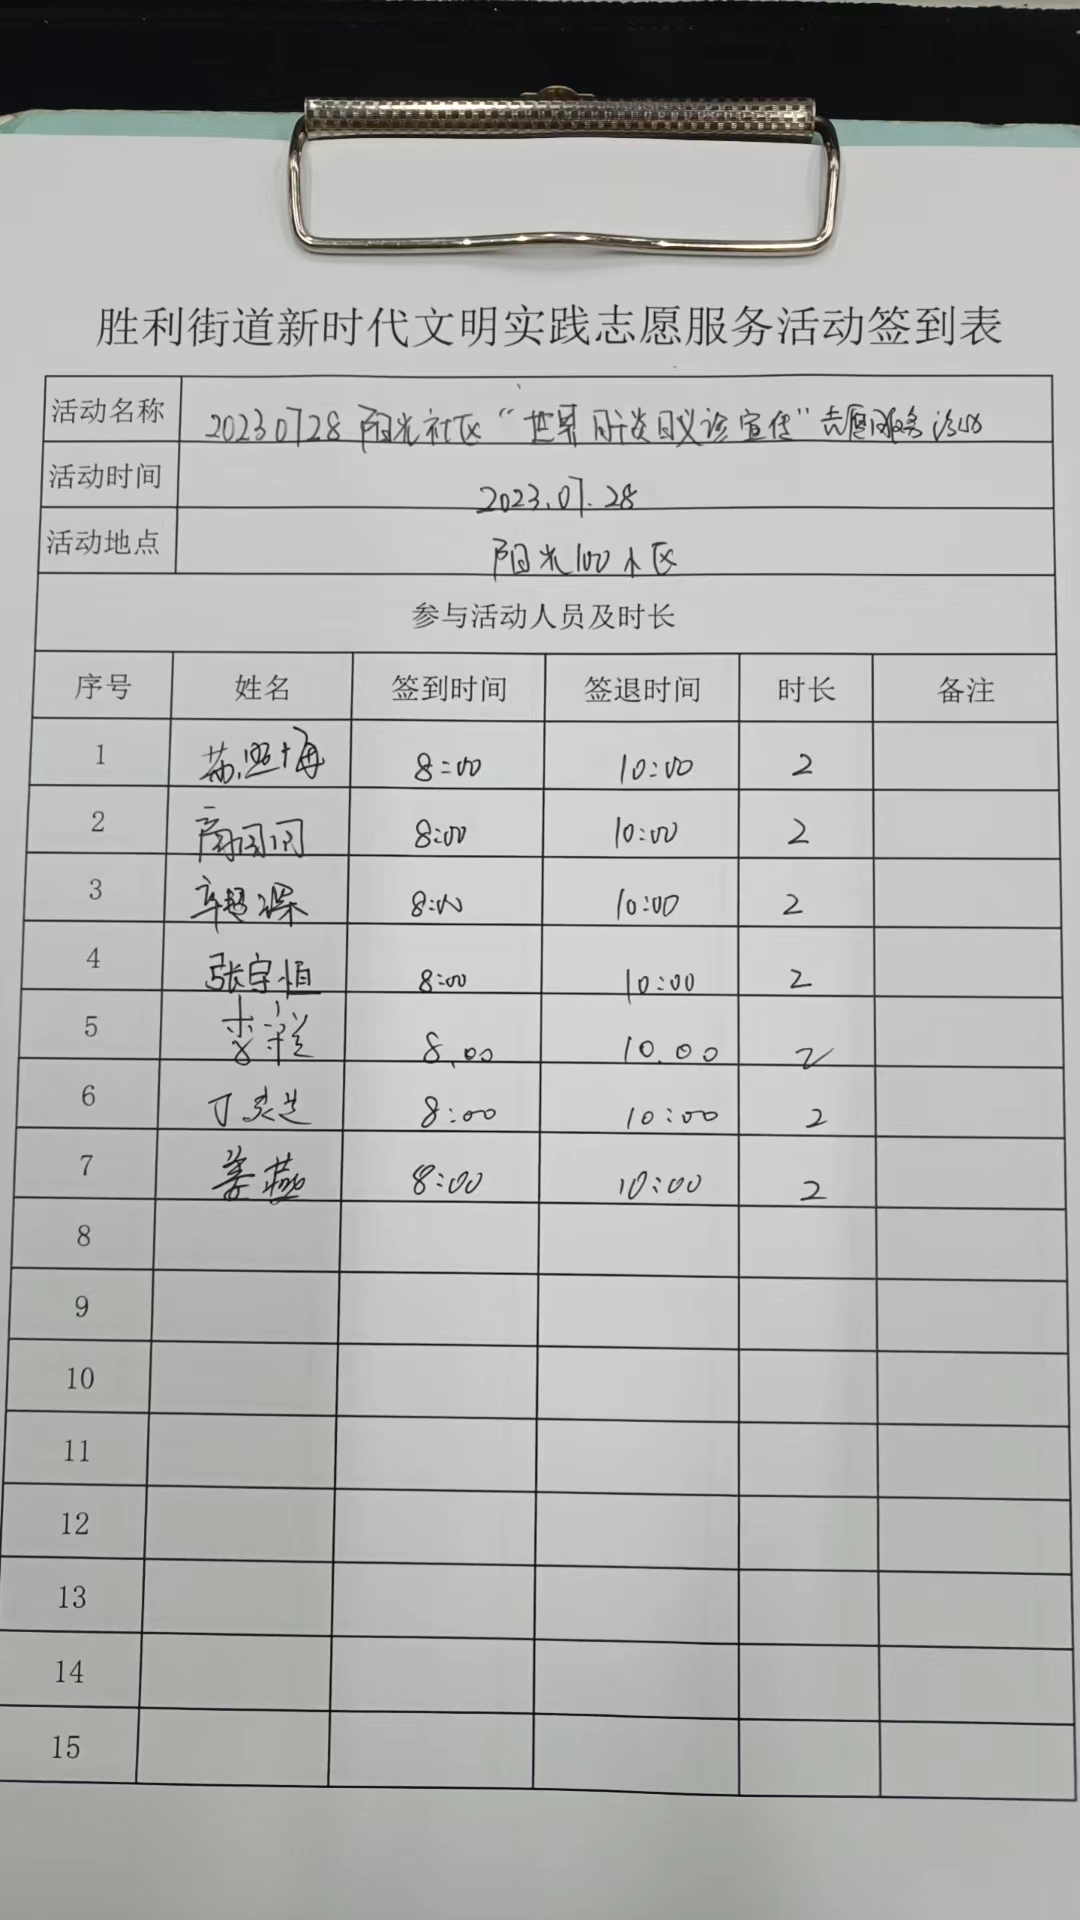 胜利街道新时代文明实践志愿服务活动签到表
活动名称 20230728 阳光社区“世界肝炎日义诊宣传”志愿服务活动
活动时间 2023.07.28
活动地点 阳光100小区
参与活动人员及时长
序号 姓名 签到时间 签退时间 时长 备注
1 8:00 10:00 2
2 8:00 10:00 2
3 8:00 10:00 2
4 张守恒 8:00 10:00 2
5 李祥 8.00 10.00 2
6 8:00 10:00 2
7 姜燕 8:00 10:00 2
8
9
10
11
12
13
14
15